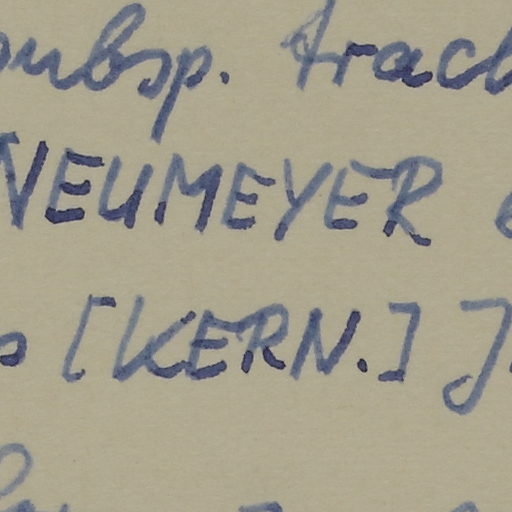 subsp. trach
NEUMEYER
[KERN.] J.